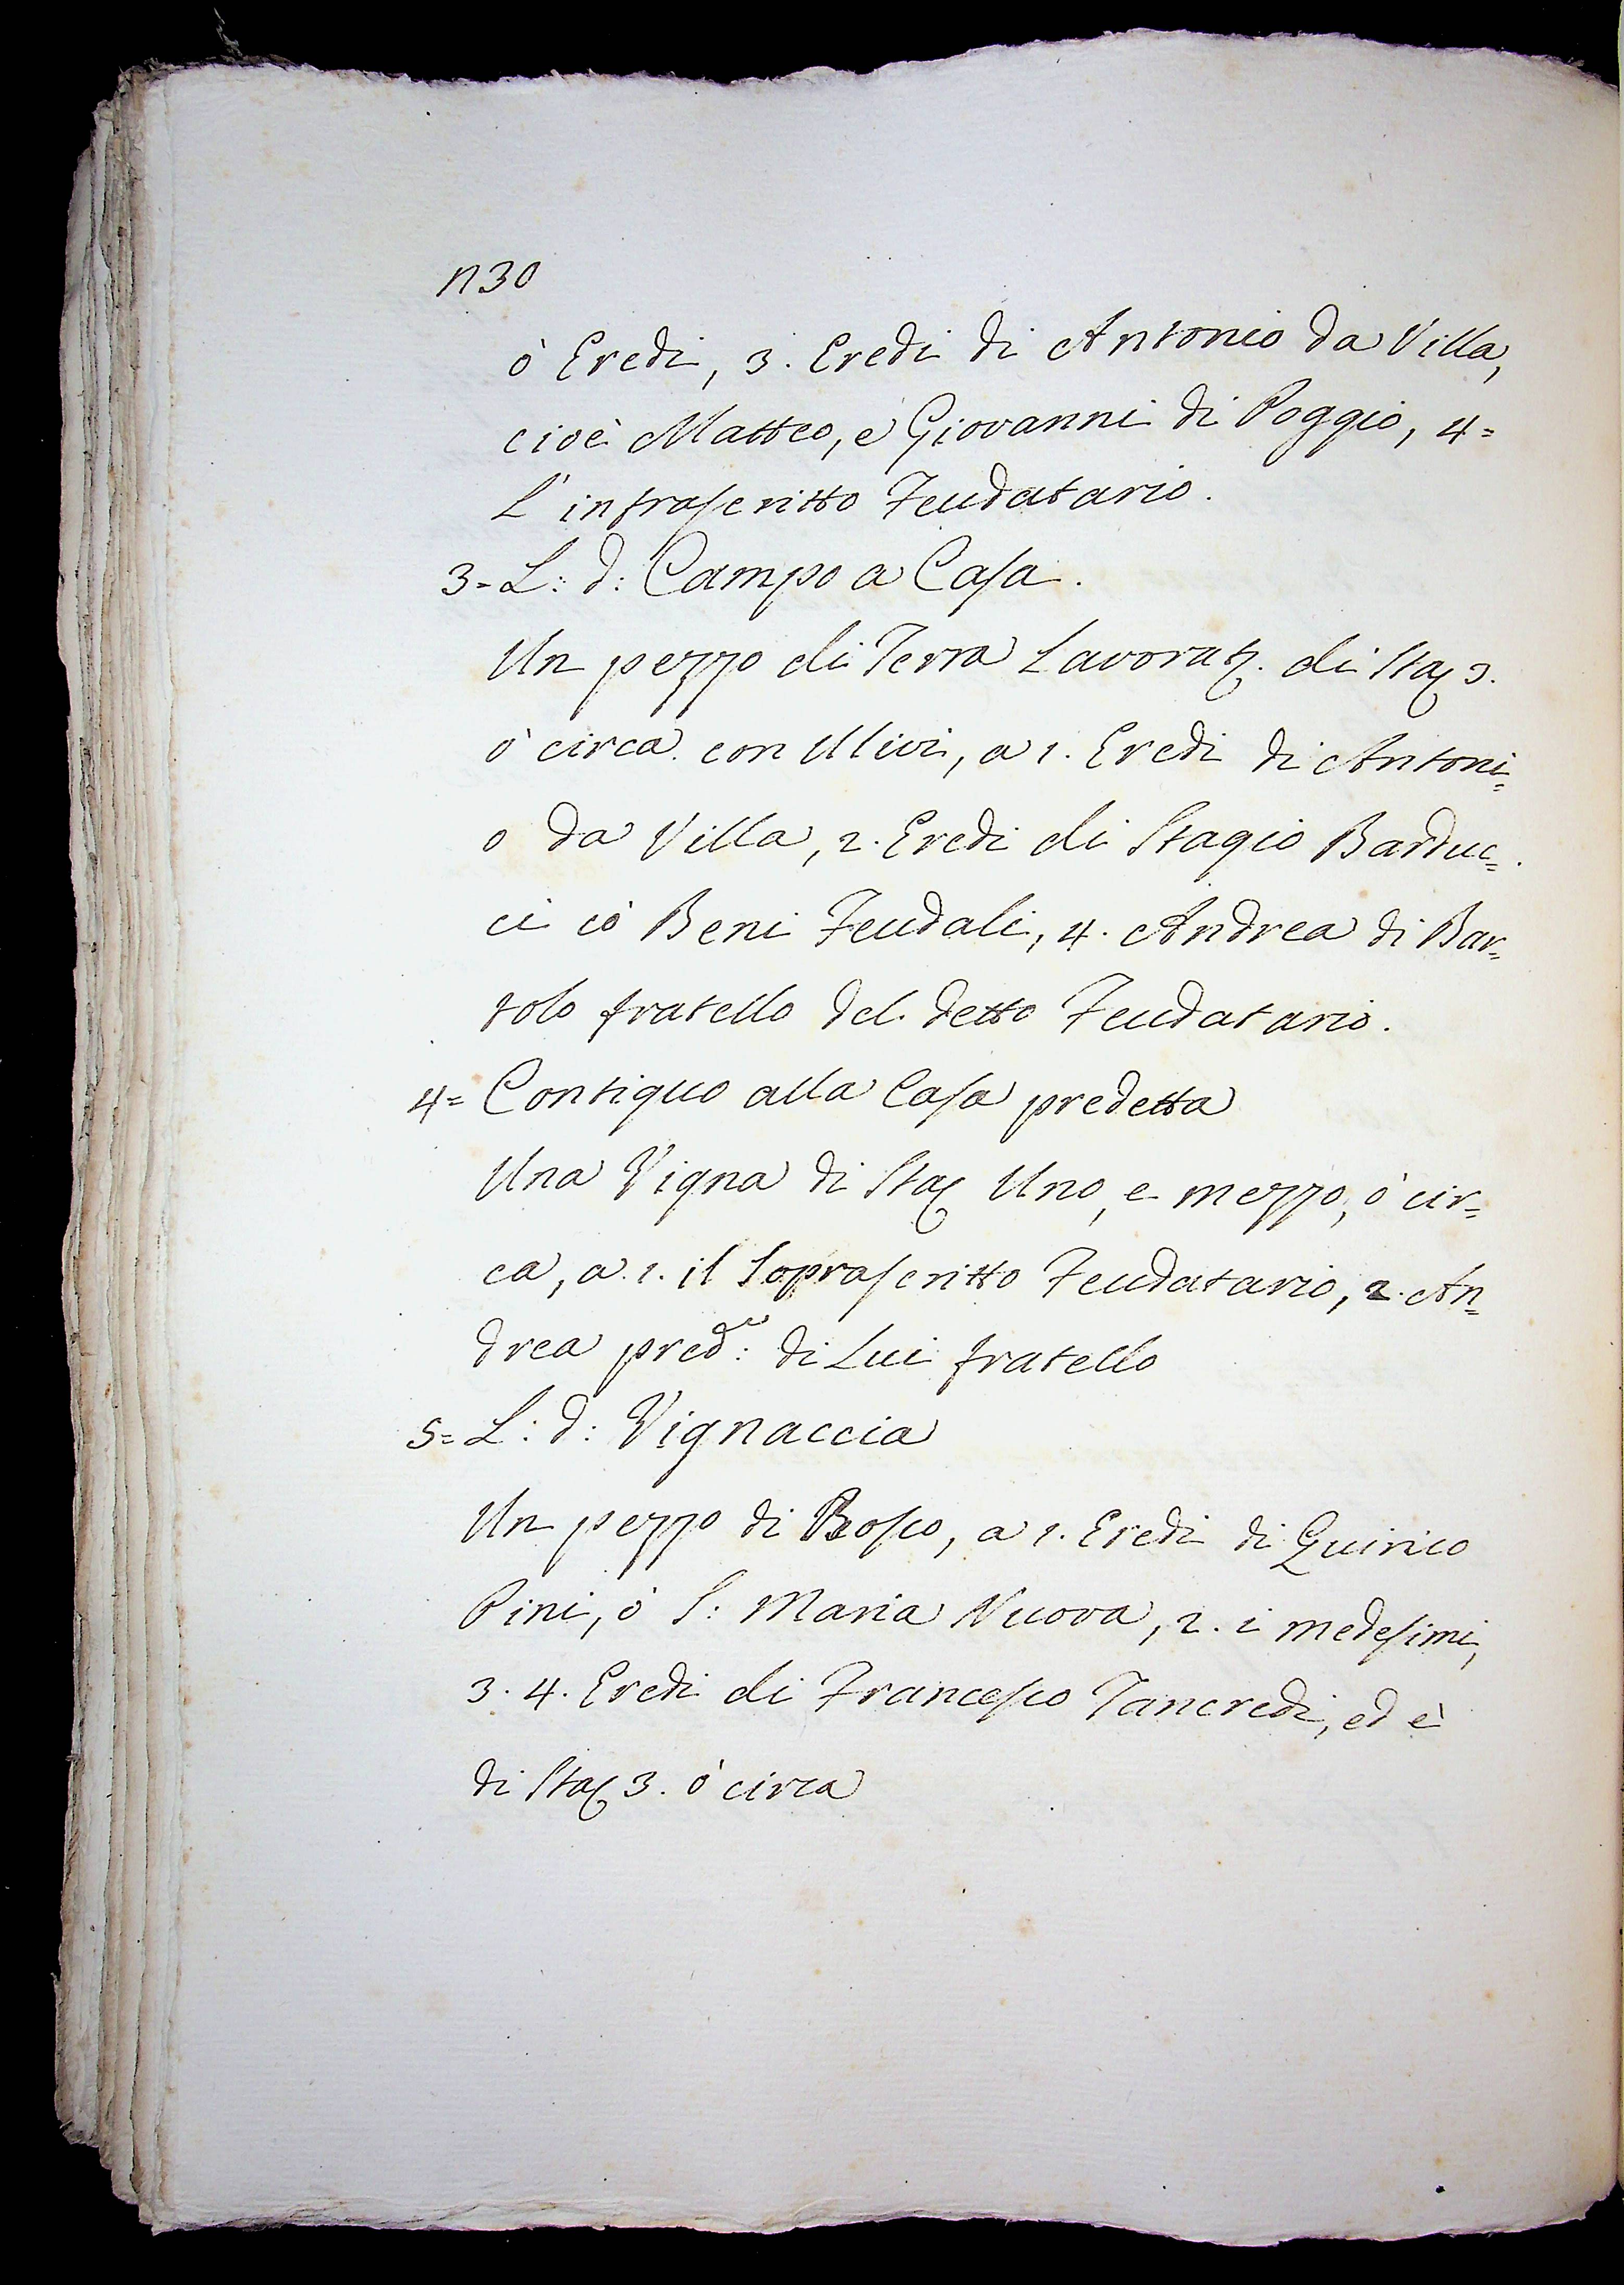 n30
ò Eredi, 3. Eredi di Antonio da Villa,
cioè Matteo, e Giovanni di Poggio, 4=
L'infrascritto Feudatario.
3= L: d: Campo a Casa.
Un pezzo di Terra Lavorat. di Sta 3.
ò circa con Ulivi, a 1. Eredi di Antoni=
o da Villa, 2. Eredi di Stagio Barduc=
ci iò Beni Feudali, 4. Andrea di Bar=
tolo fratello del detto Feudatario.
4= Contiguo alla Casa predetta
Una Vigna di Sta Uno, e mezzo, ò cir=
ca, a 1. il Soprascritto Feudatario, 2. An=
drea pred: di Lui fratello
5= L: d: Vignaccia
Un pezzo di Bosco, a 1. Eredi di Quirico
Pini, ò S: Maria Nuova, 2. i medesimi,
3. 4. Eredi di Francesco Tancredi, ed è
di Sta 3. ò circa